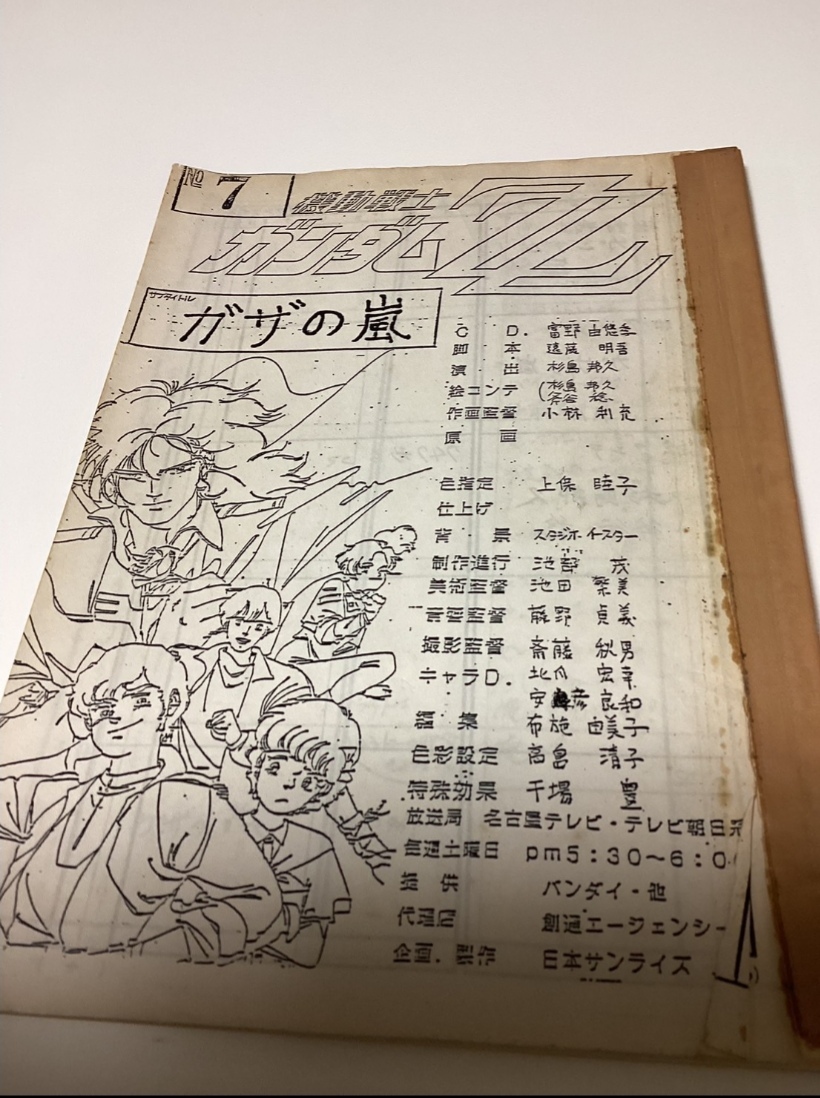 No 7
機動戦士
ガンダムZZ
サブタイトル
ガザの嵐
C D. 富野 由悠季
脚 本 遠藤 明吾
演 出 杉島 邦久
絵コンテ (杉島 邦久
斧谷 稔
作画監督 小林 利充
原 画
色指定 上保 睦子
仕上げ
背 景 スタジオイースター
制作進行 池部 茂
美術監督 池田 繁美
音響監督 藤野 貞義
撮影監督 斎藤 秋男
キャラD. 北爪 宏幸
安彦 良和
編 集 布施 由美子
色彩設定 高島 清子
特殊効果 千場 豊
放送局 名古屋テレビ・テレビ朝日系
毎週土曜日 pm5:30〜6:0
提 供 バンダイ・他
代理店 創通エージェンシー
企画．製作 日本サンライズ